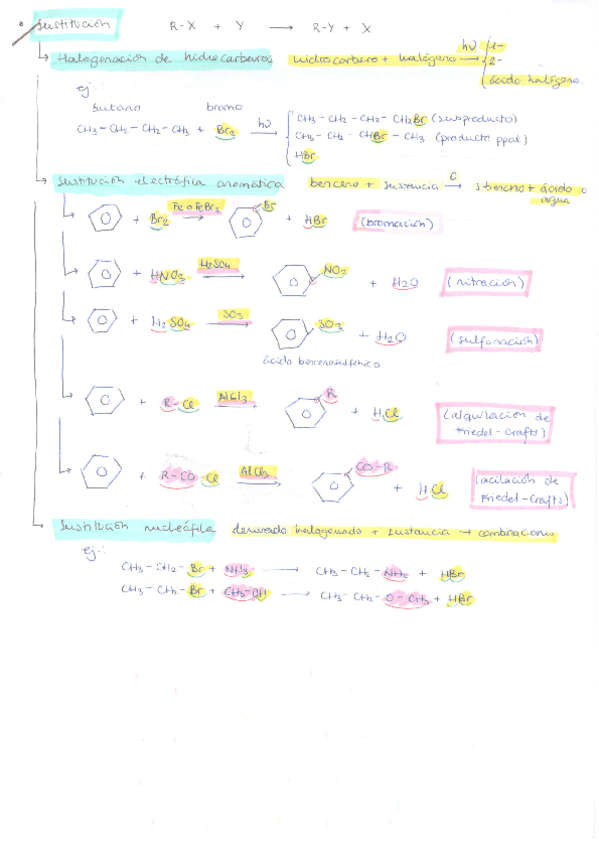 • Sustitución R-X + Y → R-Y + X
↳ Halogenación de hidrocarburos hidrocarburo + halógeno hν → 1- 2- ácido halógeno.
ej:
butano bromo
CH3-CH2-CH2-CH3 + Br2 hν → CH3-CH2-CH2-CH2Br (subproducto)
CH3-CH2-CHBr-CH3 (producto ppal)
HBr
Sustitución electrófila aromática benceno + sustancia C → benceno + ácido o agua
+ Br2 Fe o FeBr3 → Br + HBr (bromación)
+ HNO3 H2SO4 → NO2 + H2O (nitración)
+ H2SO4 SO3 → SO3 + H2O (sulfonación)
ácido bencenosulfónico
+ R-Cl AlCl3 → R + HCl (alquilación de
Friedel-Crafts)
+ R-CO Cl AlCl3 → CO-R + HCl (acilación de
Friedel-Crafts)
Sustitución nucleófila derivado halogenado + sustancia → combinaciones
ej:
CH3-CH2-Br + NH3 → CH3-CH2-NH2 + HBr
CH3-CH2-Br + CH3-OH → CH3-CH2-O-CH3 + HBr